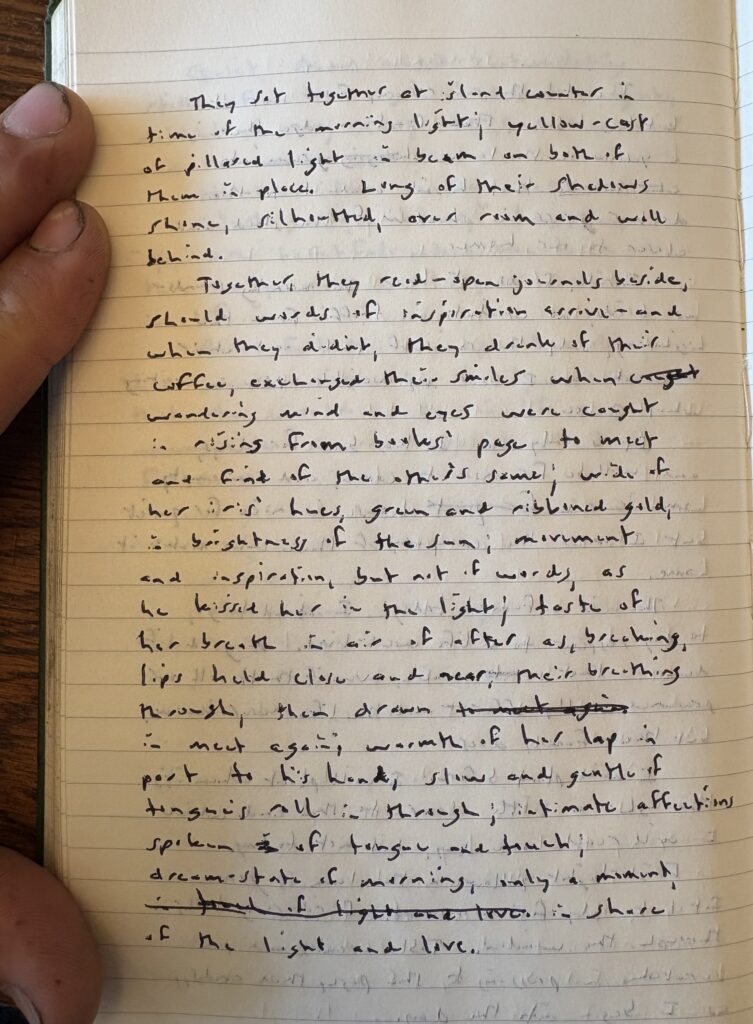 They sat together at island counter in
time of the morning light; yellow-cast
of pillared light in beam on both of
them in place. Long of their shadows
shone, silhoutted, over room and wall
behind.
Together, they read-open journals beside,
should words of inspiration arrive-and
when they didnt, they drank of their
coffee, exchanged their smiles when caught
wandering mind and eyes were caught
in rising from books' page to meet
and find of the other's same; wide of
her iris' hues, green and ribboned gold,
in brightness of the sun; movement
and inspiration, but not of words, as
he kissed her in the light; taste of
her breath in air of after as, breaking,
lips held close and near, their breathing
through, then drawn to meet again.
in meet again; warmth of her lap in
part to his hand, slow and gentle of
tongue's roll in through; intimate affections
spoken of tongue and touch;
dream-state of morning, only a moment,
in touch of light and love. in share
of the light and love.